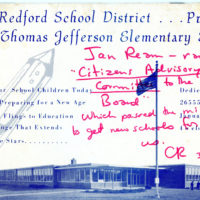 Redford School District . . . Pr
Thomas Jefferson Elementary S
Jan Ream - ran
"Citizens Advisory
Committee to the
Board"
which passed the mi
to get new schools fo
us.
CR
ar School Children Toda
Preparing for a New Age
Flings to Education
nge That Extends
e Stars.......
Dedic
26555
Janua